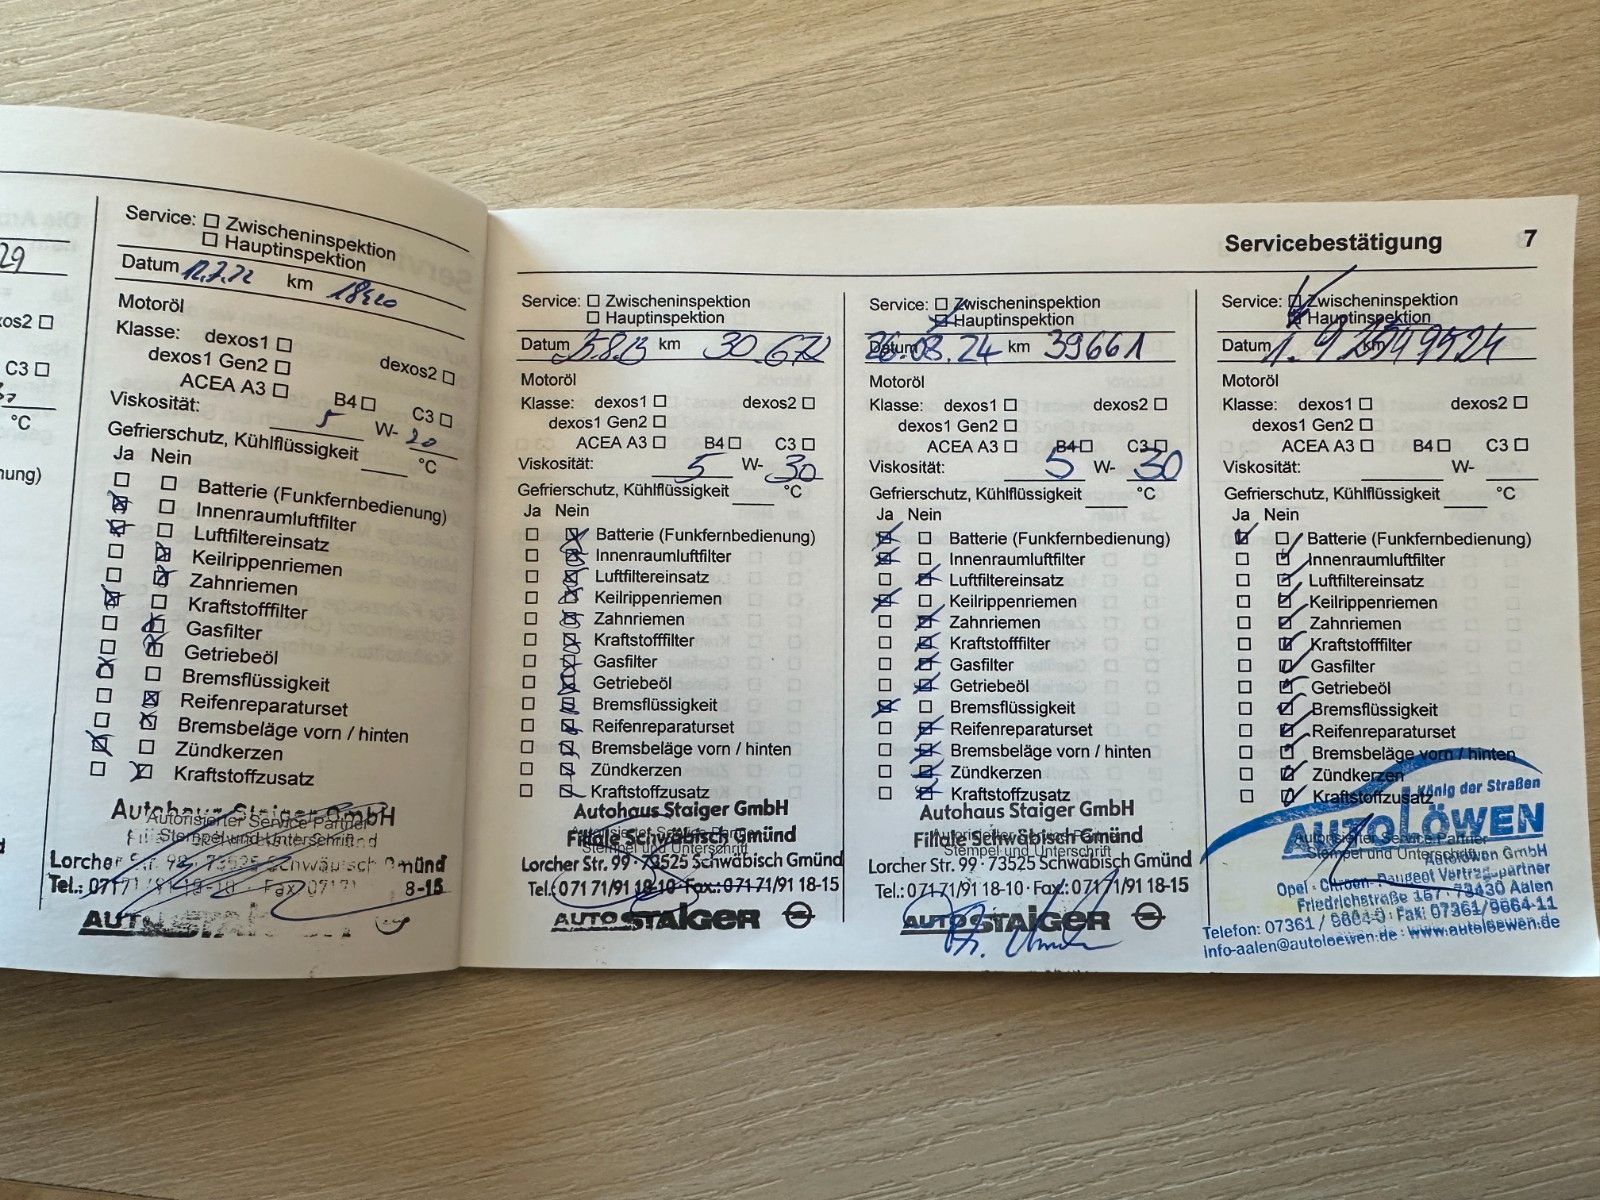 29
xos2 ☐
C3 ☐
°C
nung)
Service: ☐ Zwischeninspektion
☐ Hauptinspektion
Datum 12.7.22 km 18420
Motoröl
Klasse: dexos1 ☐ dexos2 ☐
dexos1 Gen2 ☐
ACEA A3 ☐ B4 ☐ C3 ☐
Viskosität: 5 W- 20
Gefrierschutz, Kühlflüssigkeit °C
Ja Nein
Batterie (Funkfernbedienung)
Innenraumluftfilter
Luftfiltereinsatz
Keilrippenriemen
Zahnriemen
Kraftstofffilter
Gasfilter
Getriebeöl
Bremsflüssigkeit
Reifenreparaturset
Bremsbeläge vorn / hinten
Zündkerzen
Kraftstoffzusatz
Autohaus Staiger GmbH
Autorisierter Service Partner
Stempel und Unterschrift
Lorcher Str. 99 · 73525 Schwäbisch Gmünd
Tel.: 07171/91 18-10 · Fax 07171 8-15
AUTO STAIGER
Servicebestätigung 7
Service: ☐ Zwischeninspektion
☐ Hauptinspektion
Datum km 30.672
Motoröl
Klasse: dexos1 ☐ dexos2 ☐
dexos1 Gen2 ☐
ACEA A3 ☐ B4 ☐ C3 ☐
Viskosität: 5 W- 30
Gefrierschutz, Kühlflüssigkeit °C
Ja Nein
Batterie (Funkfernbedienung)
Innenraumluftfilter
Luftfiltereinsatz
Keilrippenriemen
Zahnriemen
Kraftstofffilter
Gasfilter
Getriebeöl
Bremsflüssigkeit
Reifenreparaturset
Bremsbeläge vorn / hinten
Zündkerzen
Kraftstoffzusatz
Autohaus Staiger GmbH
Filiale Schwäbisch Gmünd
Autorisierter Service Partner
Stempel und Unterschrift
Lorcher Str. 99 · 73525 Schwäbisch Gmünd
Tel.: 071 71/91 18-10 · Fax.: 071 71/91 18-15
AUTO STAIGER
Service: ☐ Zwischeninspektion
☒ Hauptinspektion
Datum 26.08.24 km 39661
Motoröl
Klasse: dexos1 ☐ dexos2 ☐
dexos1 Gen2 ☐
ACEA A3 ☐ B4 ☐ C3 ☐
Viskosität: 5 W- 30
Gefrierschutz, Kühlflüssigkeit °C
Ja Nein
Batterie (Funkfernbedienung)
Innenraumluftfilter
Luftfiltereinsatz
Keilrippenriemen
Zahnriemen
Kraftstofffilter
Gasfilter
Getriebeöl
Bremsflüssigkeit
Reifenreparaturset
Bremsbeläge vorn / hinten
Zündkerzen
Kraftstoffzusatz
Autohaus Staiger GmbH
Filiale Schwäbisch Gmünd
Stempel und Unterschrift
Lorcher Str. 99 · 73525 Schwäbisch Gmünd
Tel.: 071 71/91 18-10 · Fax.: 071 71/91 18-15
AUTO STAIGER
Service: ☐ Zwischeninspektion
☒ Hauptinspektion
Datum km
Motoröl
Klasse: dexos1 ☐ dexos2 ☐
dexos1 Gen2 ☐
ACEA A3 ☐ B4 ☐ C3 ☐
Viskosität: W-
Gefrierschutz, Kühlflüssigkeit °C
Ja Nein
Batterie (Funkfernbedienung)
Innenraumluftfilter
Luftfiltereinsatz
Keilrippenriemen
Zahnriemen
Kraftstofffilter
Gasfilter
Getriebeöl
Bremsflüssigkeit
Reifenreparaturset
Bremsbeläge vorn / hinten
Zündkerzen
Kraftstoffzusatz
König der Straßen
AUTOLÖWEN
Autorisierter Service Partner
Stempel und Unterschrift
Autolöwen GmbH
Opel · Citroen · Peugeot Vertragspartner
Friedrichstraße 157 · 73430 Aalen
Telefon: 07361 / 9664-0 · Fax: 07361/9664-11
info-aalen@autoloewen.de · www.autoloewen.de